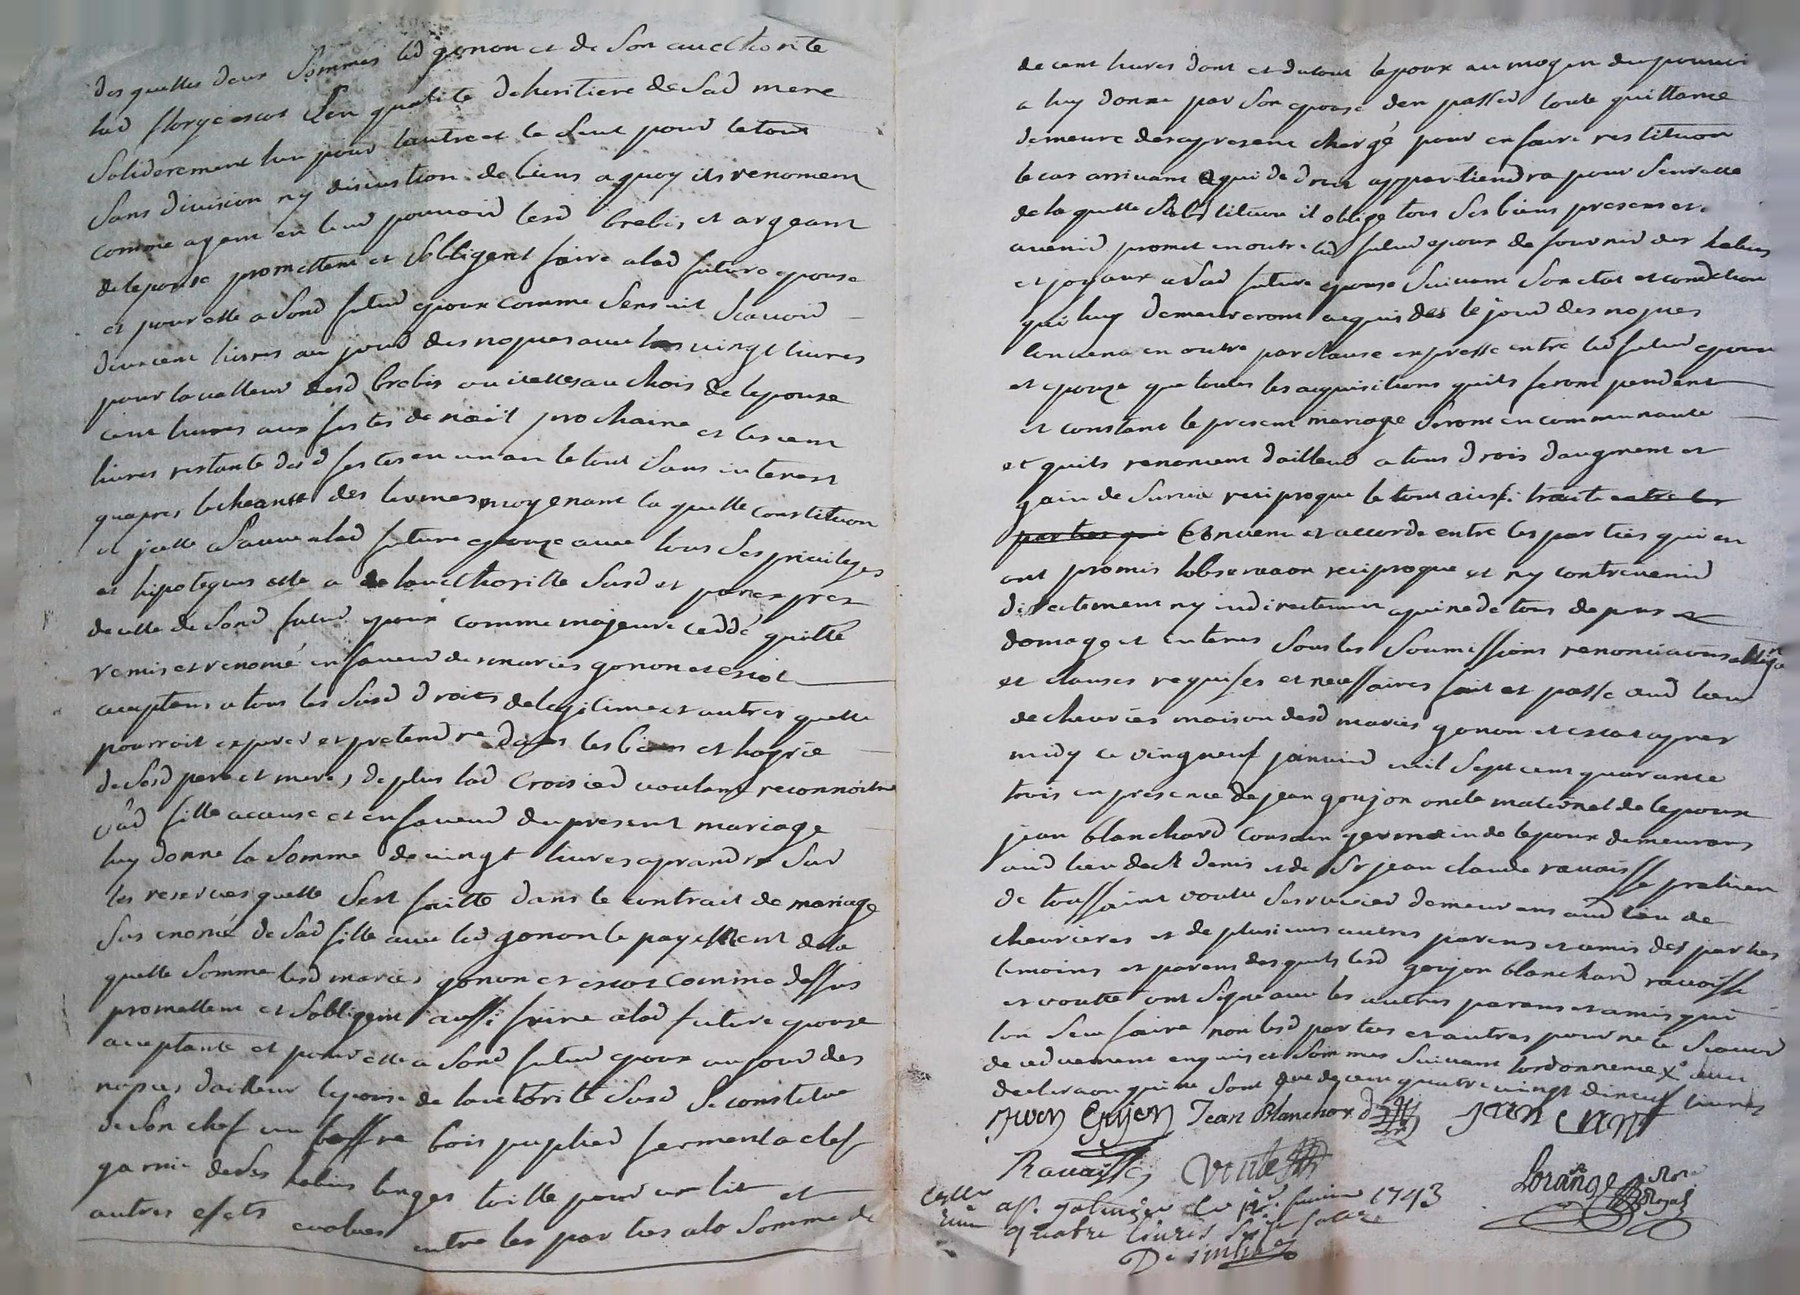 des quelles deux sommes led gonon et de son aucthorité
lad florye escot en qualité dheritiere de sad mere
soliderement lun pour lautre et le seul pour le tout
sans division ny discustion de biens a quoy ils renoncent
comme ayant en leur pouvoir lesd brebis et argeant
de lepouse promettent et sobligent faire a lad future epouse
et pour elle a sond futur epoux comme sensuit scavoir
deux cent livres au jour des nopces avec les vingt livres
pour la valleur desd brebis ou icelles au chois de lepouse
cent livres aux festes de noël prochaine et les cent
livres restante desd festes en un an le tout sans interest
quapres lecheance des termes moyenant la quelle constitution
et icelle sauve a lad future epouze avec tous ses privileges
et hipoteques elle a de laucthoritte susd et par exprez
de celle de sond futur epoux comme majeure ceddé quitté
remis et renoncé en faveur des mariés gonon et escot
acceptans a tous les susd droits de legitime et autres quelle
pourroit esperer et pretendre dans les biens et hoyrie
de sesd pere et mere, de plus lad croisier voulant reconnoitre
sad fille a cause et en faveur du present mariage
luy donne la somme de vingt livres a prandre sur
les reserves quelle sest faitte dans le contrait de mariage
sus enoncé de sad fille avec led gonon le payement de la
quelle somme lesd mariés gonon et escot comme dessus
promettent et sobligent aussi faire a lad future epouse
acceptante et pour elle a sond futur epoux au jour des
nopces, dailleur lepouse de lauctorité susd se constitue
de son chef un coffre bois puplier fermant a clef
garnie de ses habits linges toille pour un lit et
autres efets evalues entre les parties a la somme de
de cent livres dont et du tout lepoux au moyen du pouvoir
a luy donne par son epouse den passer toute quittance
demeure des a present chargé pour en faire restitution
le cas arrivant a qui de droit appartiendra pour seurette
de la quelle restitution il oblige tous ses biens presens et
avenir promet en outre led futur epoux de fournir des habits
et joyaux a sad future epouse suivant son etat et condition
qui luy demeureront acquis des le jour des nopces
convenu en outre par clause expresse entre led futur epoux
et epouze que toutes les acquisitions quils feront pendent
et constant le present mariage seront en communauté
et quils renoncent dailleur a tous drois daugment et
gain de survie reciproque le tout ainsi traité entre les
parties qui convenu et accordé entre les parties qui en
ont promis lobservaon reciproque et ny contrevenir
directement ny indirectement a peine de tous depens
domage et interes sous les soumissions renonciations obligaon
et clauses requises et necessaires fait et passé aud lieu
de chevrieres maison desd mariés gonon et escot apres
midy ce vingneuf janvier mil sept cent quarante
trois en presence de jean goujon oncle maternel de lepoux
jean blanchard cousain germain de lepoux demeurans
aud lieu de st denis et de sr jean claude ravaisse praticien
de toussaint voutte serrurier demeurans aud lieu de
chevrieres et de plusieurs autres parens et amis des parties
temoins et parens desquels lesd goujon blanchard ravaisse
et voutte ont signe avec les autres parens et amis qui
lon sceu faire non lesd parties et autres pour ne le scavoir
de ce duement enquis et sommes suivant lordonnence
declaraon qui ne sont que de cent quatre vingt dix neuf livres
Jean Blanchard
Ravaisse voutte
Lorange Nore Royal
1743
quatre livres